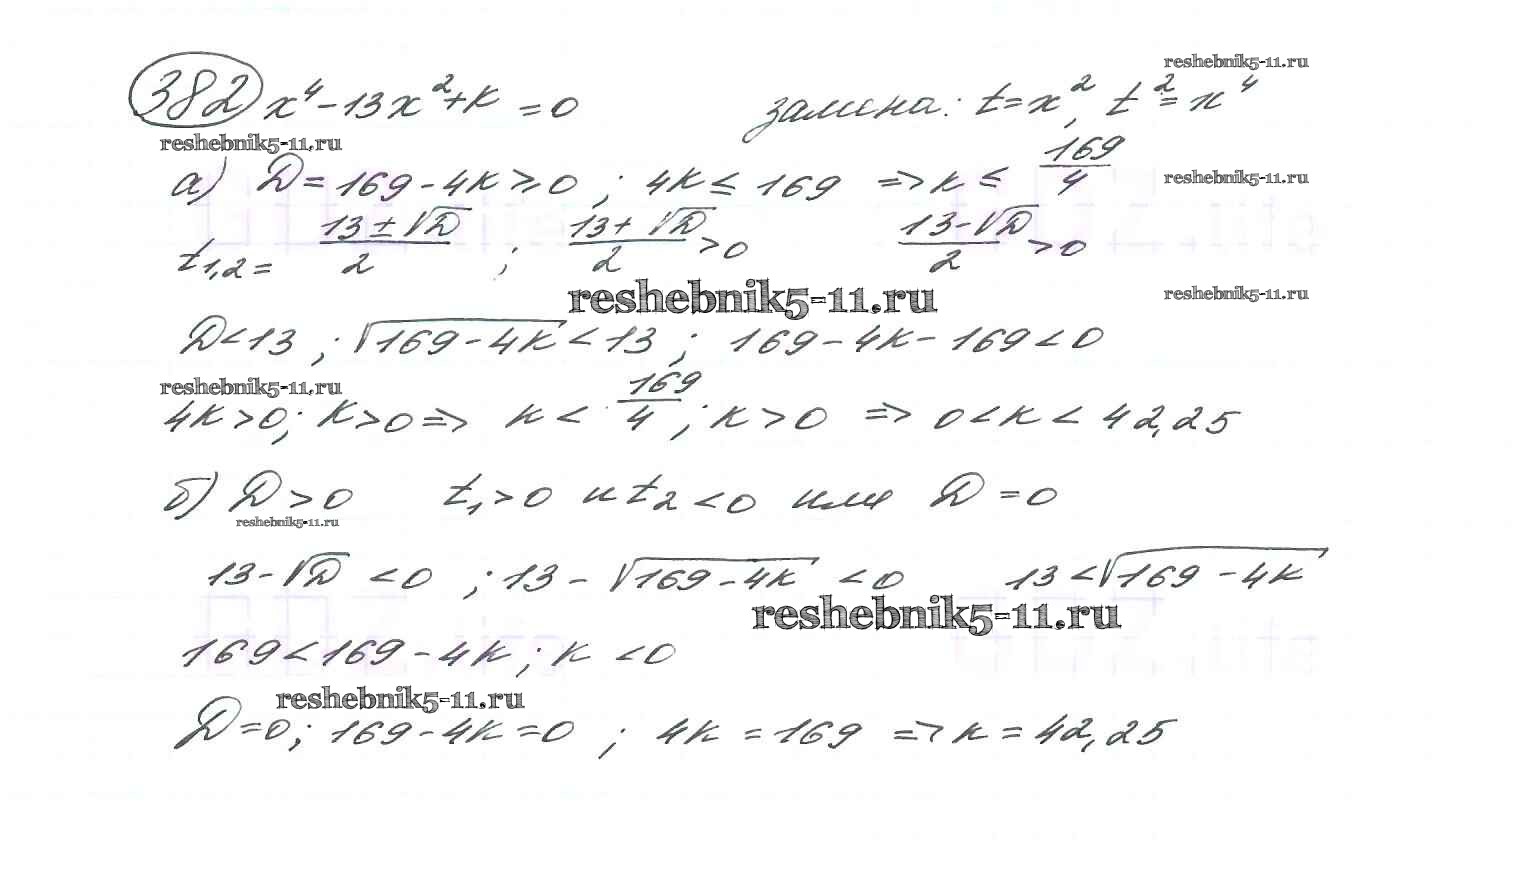 382 x⁴ - 13x² + k = 0 замена: t = x², t² = x⁴
reshebnik5-11.ru
reshebnik5-11.ru
а) D = 169 - 4k ≥ 0 ; 4k ≤ 169 => k ≤ 169/4
reshebnik5-11.ru
t1,2 = (13 ± √D)/2 ; (13 + √D)/2 > 0 (13 - √D)/2 > 0
reshebnik5-11.ru
reshebnik5-11.ru
D < 13 ; √(169 - 4k) < 13 ; 169 - 4k - 169 < 0
reshebnik5-11.ru
4k > 0; k > 0 => k < 169/4 ; k > 0 => 0 < k < 42,25
б) D > 0 t₁ > 0 и t₂ < 0 или D = 0
reshebnik5-11.ru
13 - √D < 0 ; 13 - √(169 - 4k) < 0 13 < √(169 - 4k)
reshebnik5-11.ru
169 < 169 - 4k ; k < 0
reshebnik5-11.ru
D = 0 ; 169 - 4k = 0 ; 4k = 169 => k = 42,25